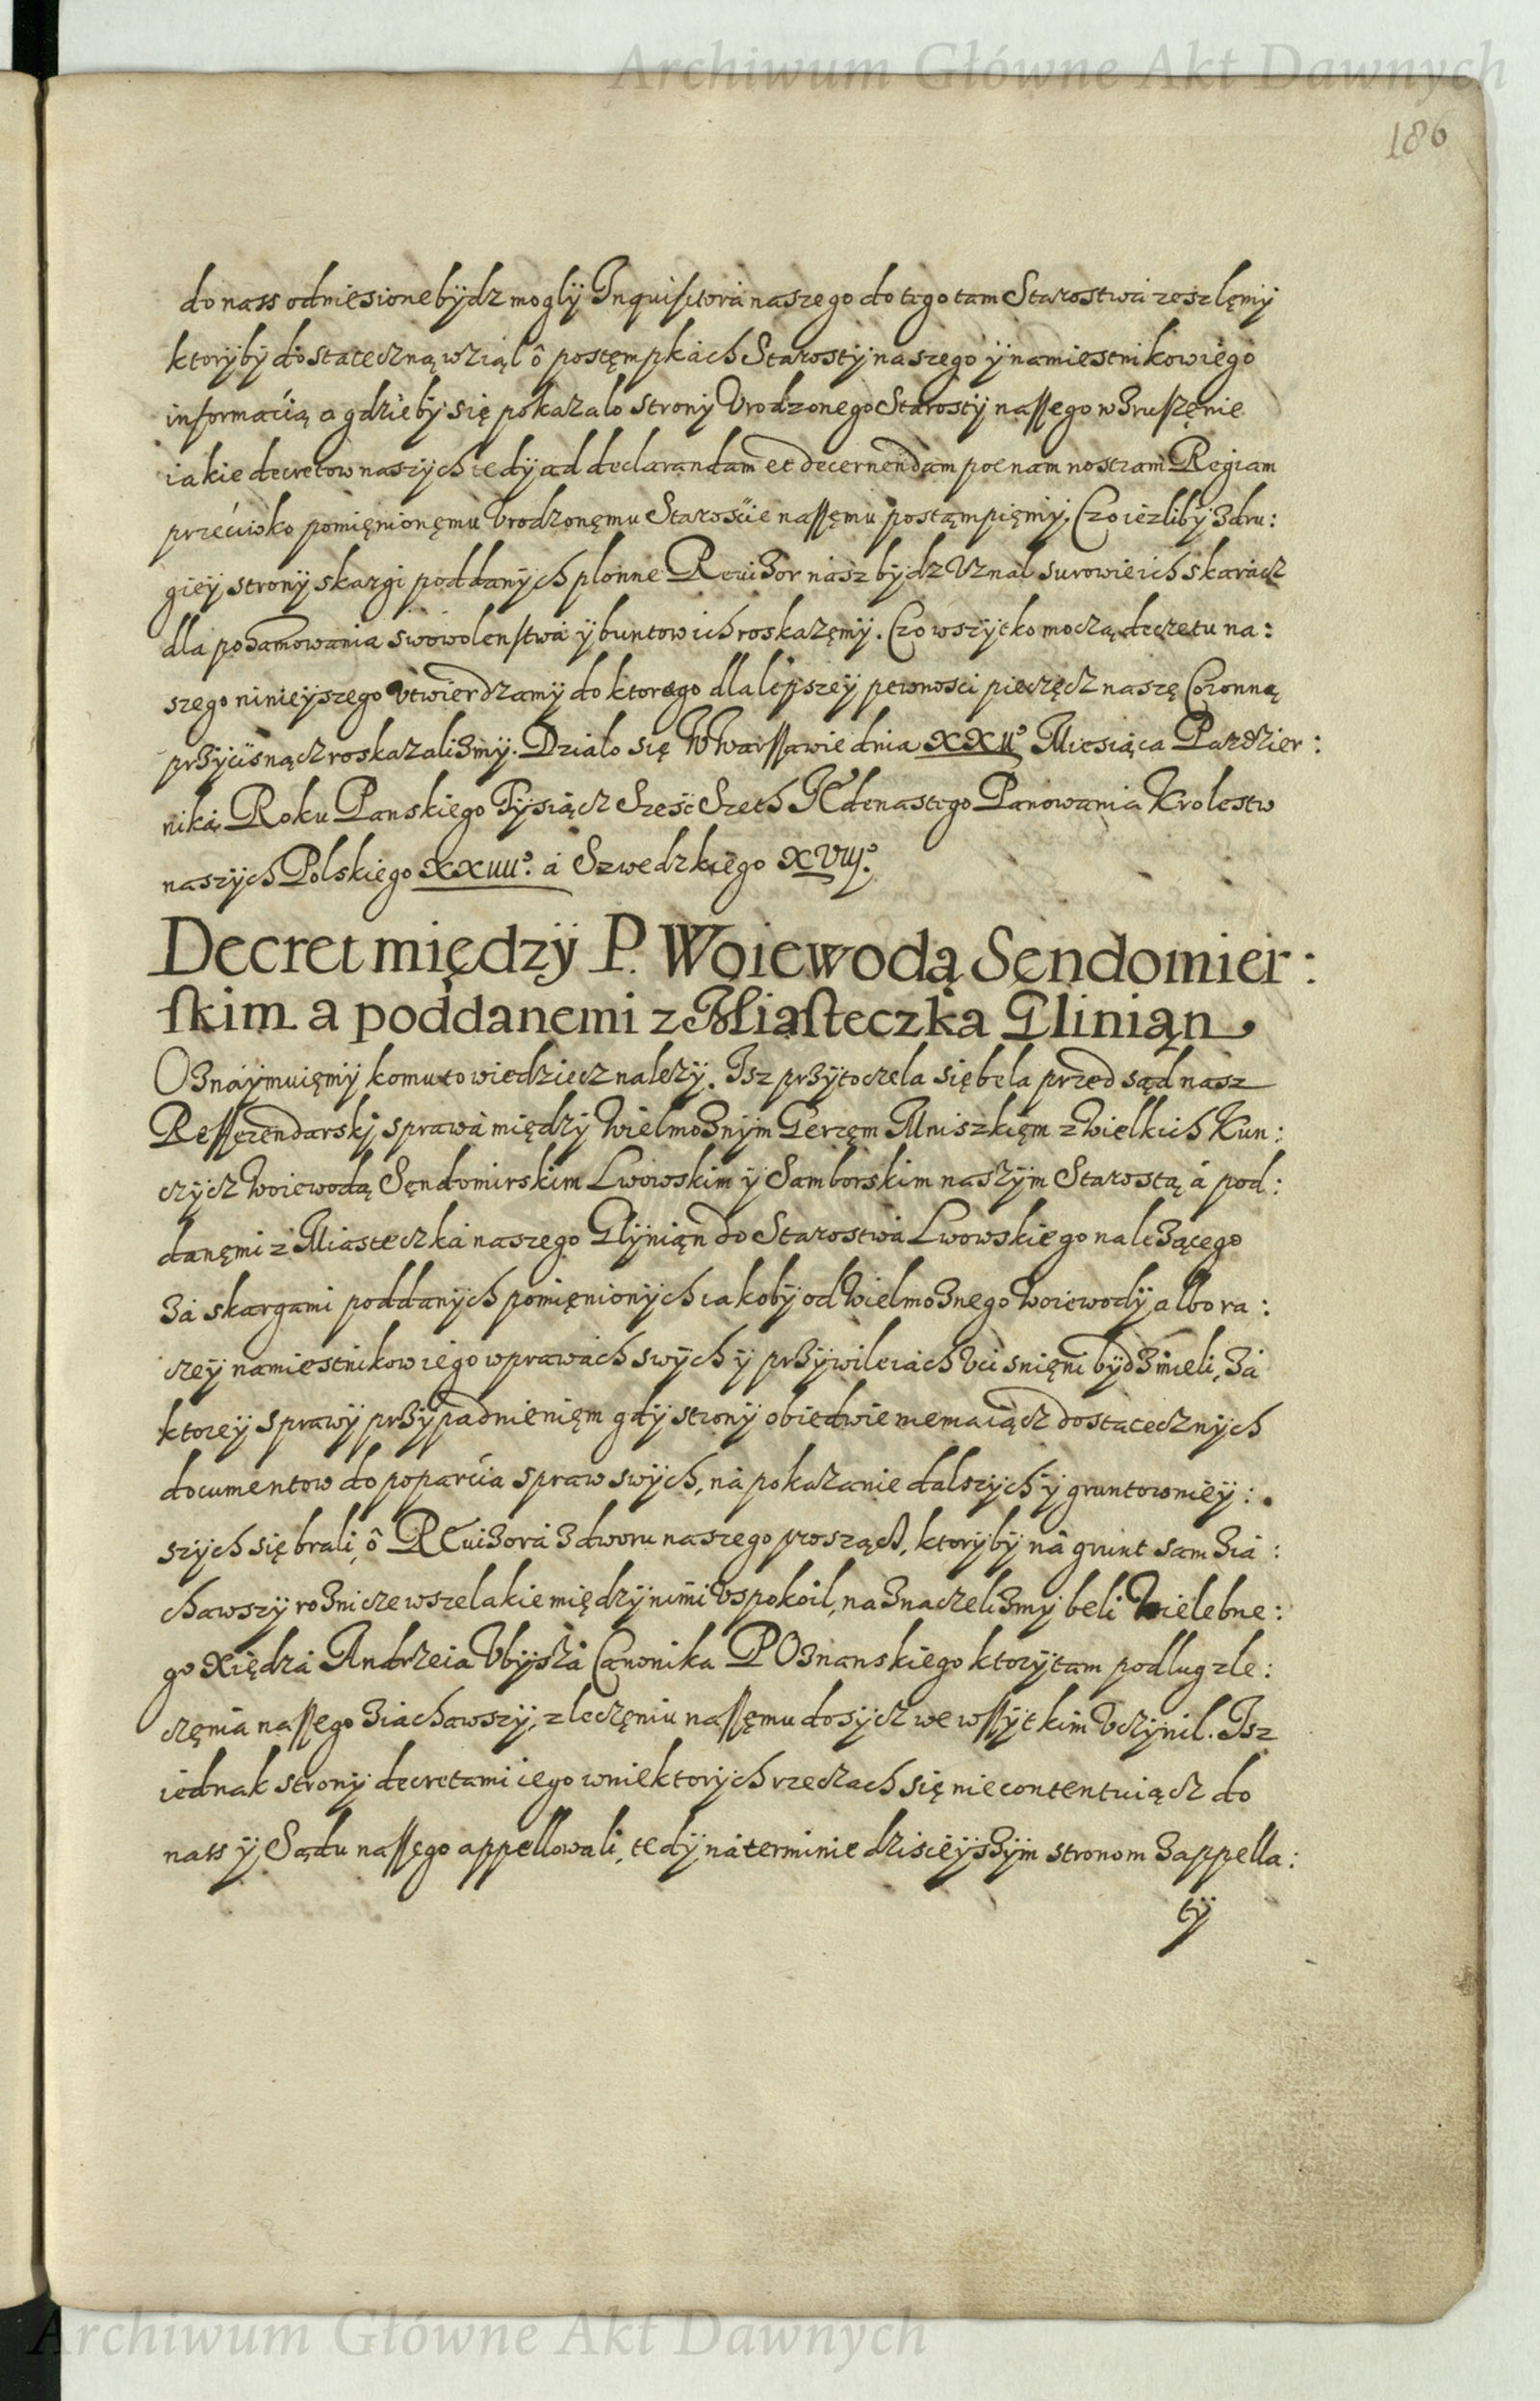 Archiwum Główne Akt Dawnych
186
do nass odniesione bydz mogly Inquisitora naszego do tego tam Starostwa zeszlęmy
ktoryby dostateczną wziąl ô postęmpkach Starosty naszego y namiestnikow iego
informacią a gdzieby się pokazalo strony Urodzonego Starosty naszego w3ruszęnie
iakie decretow naszych tedy ad declarandam et decernendam poenam nostram Regiam
przeciwko pomięnionęmu Urodzonęmu Staroscie naszęmu postąmpięmy. Czo iezliby 3 dru:
giey strony skargi poddanych plonne Reui3or nasz bydz Uznal surowie ich skaracz
dla pohamowania swowolenstwa y buntow ich roskazęmy. Czo wszytko moczą decretu na:
szego ninieyszego Utwierdzamy do ktorego dla lepszey pewnosci pieczęcz naszę Coronną
pr3ycisnącz roskazali3my. Dzialo się W Warszawie dnia XXII° Miesiąca Pazdzier:
nika Roku Panskiego Tysiącz Szesc Szeth Iedenastego Panowania Krolestw
naszych Polskiego XXIIII°. a Szwedzkiego XVIII°.
Decret między P. Woiewodą Sendomier:
skim a poddanemi z Miasteczka Glinian
O3naymuięmy komu to wiedziecz nalezy. Isz pr3ytoczela się bela przed sąd nasz
Refferendarsky sprawa między Wielmo3nym Gerzęm Mniszkięm z Wielkich Kun:
czycz Woiewodą Sęndomirskim Lwowskim y Samborskim naszym Starostą a pod:
danęmi z Miasteczka naszego Glynian do Starostwa Lwowskiego nale3ącego
3a skargami poddanych pomięnionych iakoby od Wielmo3nego Woiewody albo ra:
czey namiestnikow iego w prawach swych y pr3ywileiach Ucisnięni byd3 mieli, 3a
ktorey sprawy pr3ypadnienięm gdy strony obiedwie nie maiącz dostatecznych
documentow do poparcia spraw swych, na pokazanie dalszych y gruntowniey:
szych się brali, ô Reui3ora 3 dworu naszego prosząc, ktoryby na grunt sam 3ia:
chawszy ro3nicze wszelakie między nimi Uspokoil, na3naczeli3my beli Wielebne:
go Xiędza Andrzeia Ubysza Canonika PO3nanskiego ktory tam podlug zle:
częnia naszego 3iachawszy, zleczęniu naszęmu dosycz we wszytkim Uczynil. Isz
iednak strony decretami iego w niektorych rzeczach się nie contentuiącz do
nass y Sądu naszęgo appellowali, tedy na terminie dzisieys3ym stronom 3 appella:
ty
Archiwum Główne Akt Dawnych